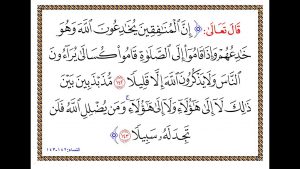 قَالَ تَعَالَى: ﴿ إِنَّ ٱلْمُنَٰفِقِينَ يُخَٰدِعُونَ ٱللَّهَ وَهُوَ
خَٰدِعُهُمْ وَإِذَا قَامُوٓا۟ إِلَى ٱلصَّلَوٰةِ قَامُوا۟ كُسَالَىٰ يُرَآءُونَ
ٱلنَّاسَ وَلَا يَذْكُرُونَ ٱللَّهَ إِلَّا قَلِيلًا ١٤٢ مُّذَبْذَبِينَ بَيْنَ
ذَٰلِكَ لَآ إِلَىٰ هَٰٓؤُلَآءِ وَلَآ إِلَىٰ هَٰٓؤُلَآءِ ۚ وَمَن يُضْلِلِ ٱللَّهُ فَلَن
تَجِدَ لَهُۥ سَبِيلًا ١٤٣ ﴾
النساء: ١٤٢ - ١٤٣